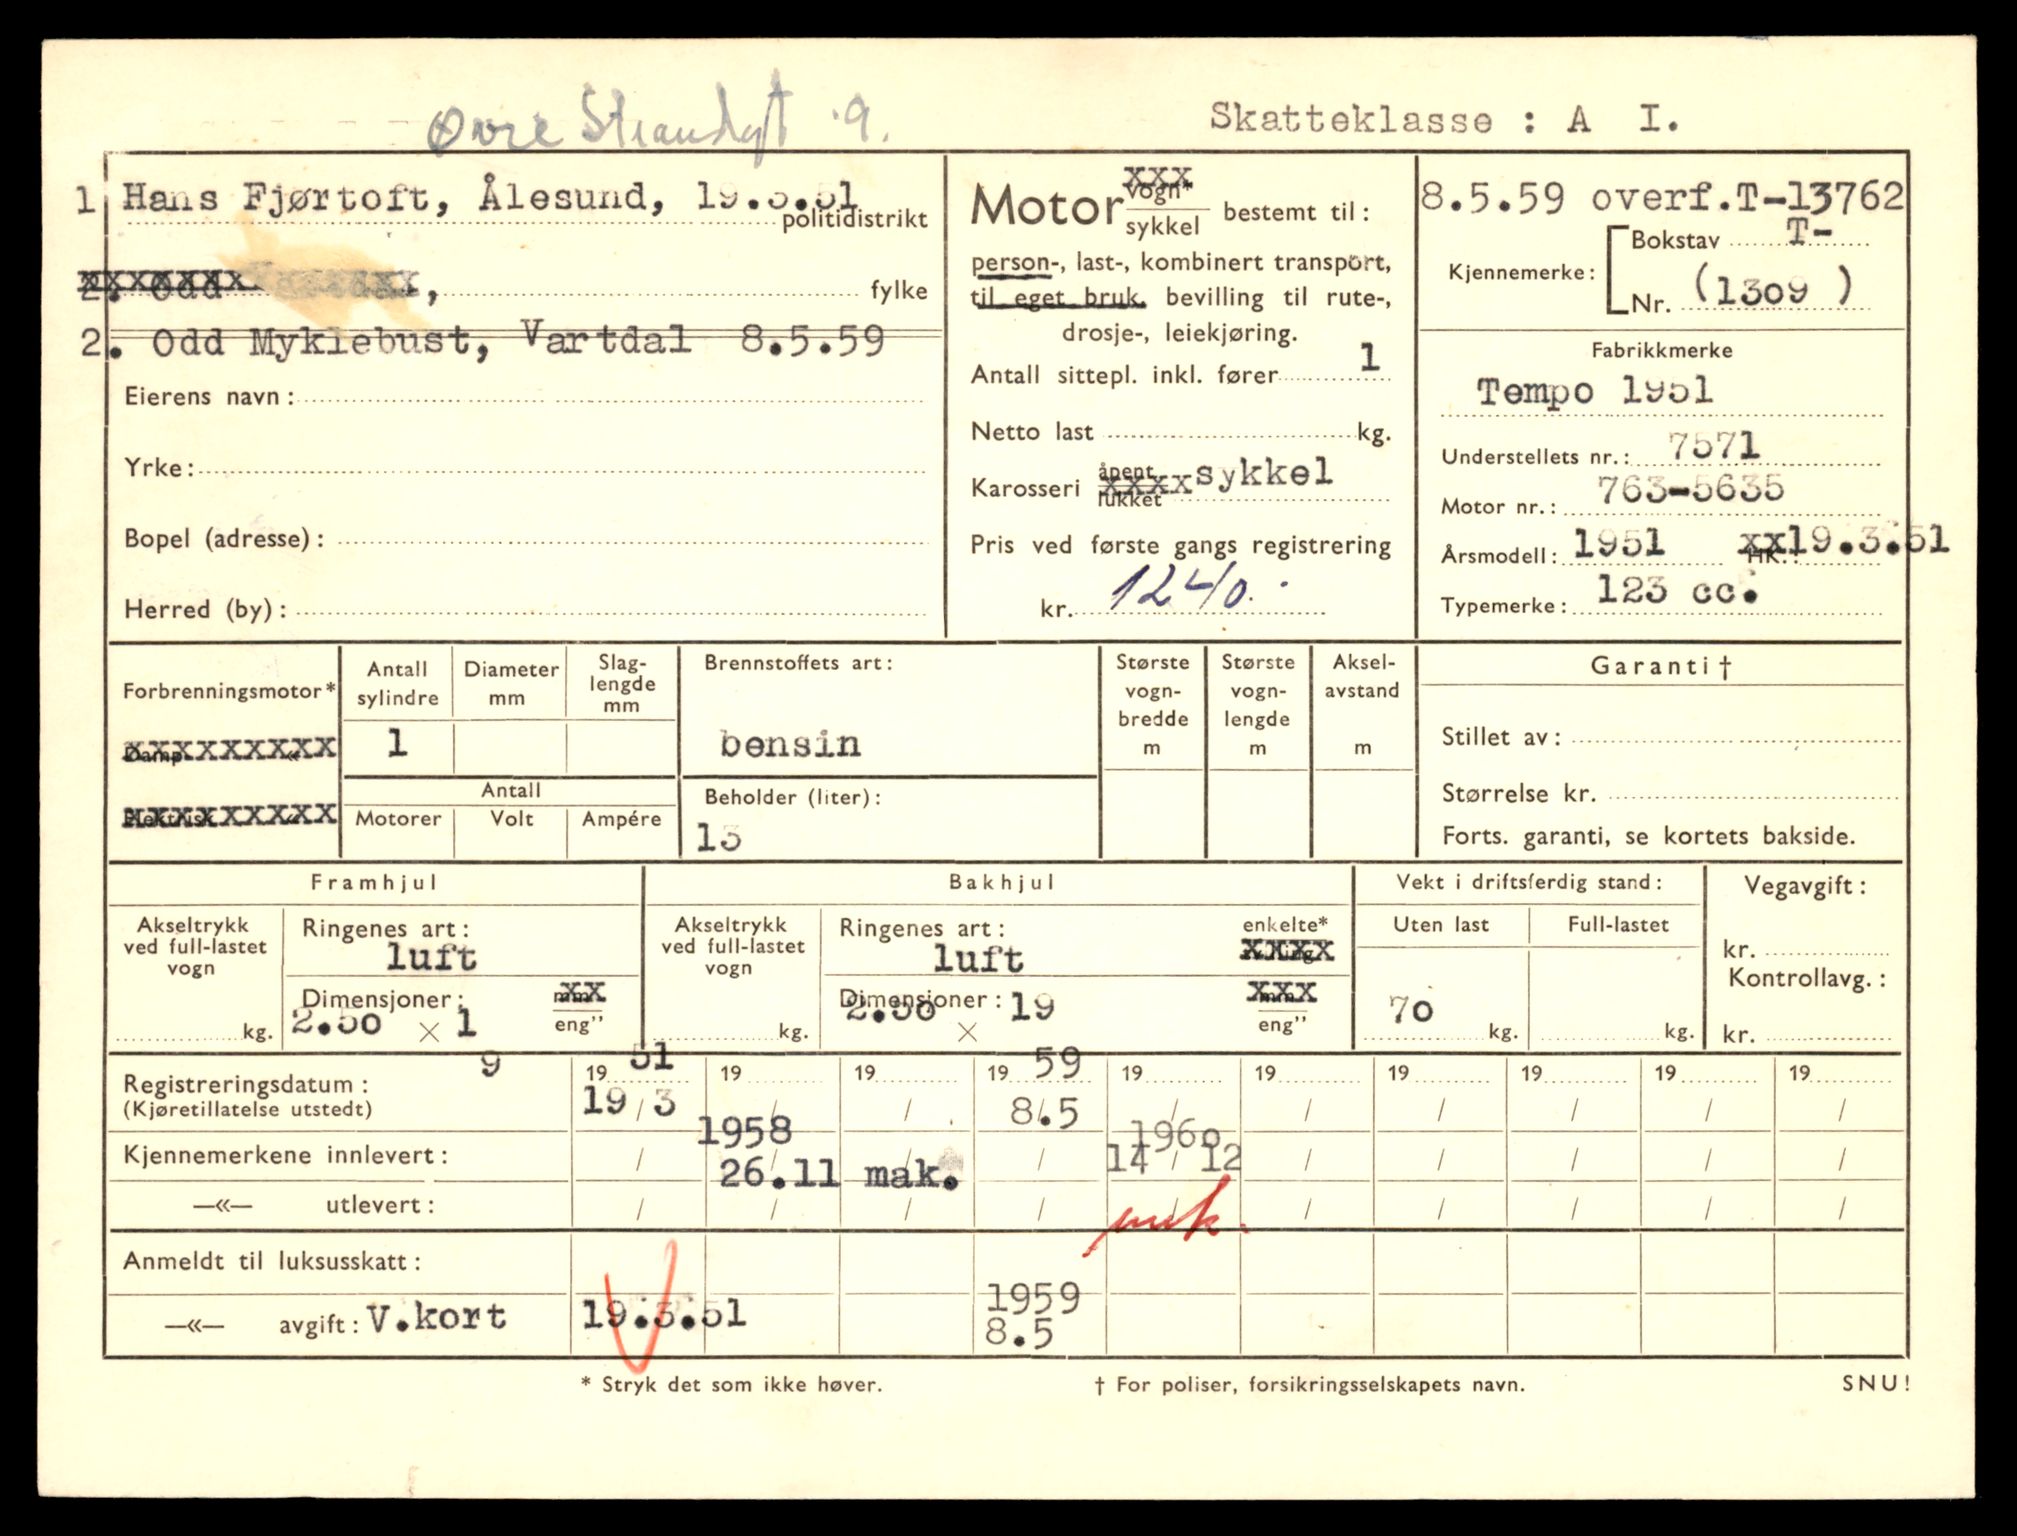 Øvre Strandgt 9.
Skatteklasse : A I.
1 Hans Fjørtoft, Ålesund, 19.3.51
politidistrikt
2. Odd
, fylke
2. Odd Myklebust, Vartdal 8.5.59
Eierens navn :
Yrke :
Bopel (adresse) :
Herred (by) :
Motor vogn* xxx
sykkel bestemt til :
person-, last-, kombinert transport,
til eget bruk, bevilling til rute-,
drosje-, leiekjøring.
Antall sittepl. inkl. fører 1
Netto last kg.
Karosseri åpent xxxx lukket sykkel
Pris ved første gangs registrering
kr. 1240.-
8.5.59 overf.T-13762
Kjennemerke : Bokstav T-
Nr. (1309 )
Fabrikkmerke
Tempo 1951
Understellets nr. : 7571
Motor nr. : 763-5635
Årsmodell : 1951 HK. : xx19.3.51
Typemerke : 123 cc.
Forbrenningsmotor*
Damp « xxxxxxxxx
Elektrisk « xxxxxxxxx
Antall sylindre
1
Diameter mm
Slag-lengde mm
Antall
Motorer Volt Ampére
Brennstoffets art :
bensin
Beholder (liter) :
13
Største vogn-bredde m
Største vogn-lengde m
Aksel-avstand m
Garanti †
Stillet av :
Størrelse kr.
Forts. garanti, se kortets bakside.
Framhjul
Akseltrykk ved full-lastet vogn
kg.
Ringenes art :
luft
Dimensjoner : mm xx
2.50 × 19 eng”
Bakhjul
Akseltrykk ved full-lastet vogn
kg.
Ringenes art : enkelte*
luft xxxx
Dimensjoner : mm xxx
2.50 × 19 eng”
Vekt i driftsferdig stand :
Uten last Full-lastet
70 kg. kg.
Vegavgift :
kr.
Kontrollavg. :
kr.
Registreringsdatum : 19 51 19 19 19 59 19 19 19 19 19 19
(Kjøretillatelse utstedt) 19/3 / / 8.5 / / / / / /
1958 1960
Kjennemerkene innlevert : / 26.11 mak. / 14/12 / / / / /
—«— utlevert : / / / / / / / / / /
mak.
Anmeldt til luksusskatt :
1959
—«— avgift : V.kort 19.3.51 8.5
* Stryk det som ikke høver.
† For poliser, forsikringsselskapets navn.
SNU!